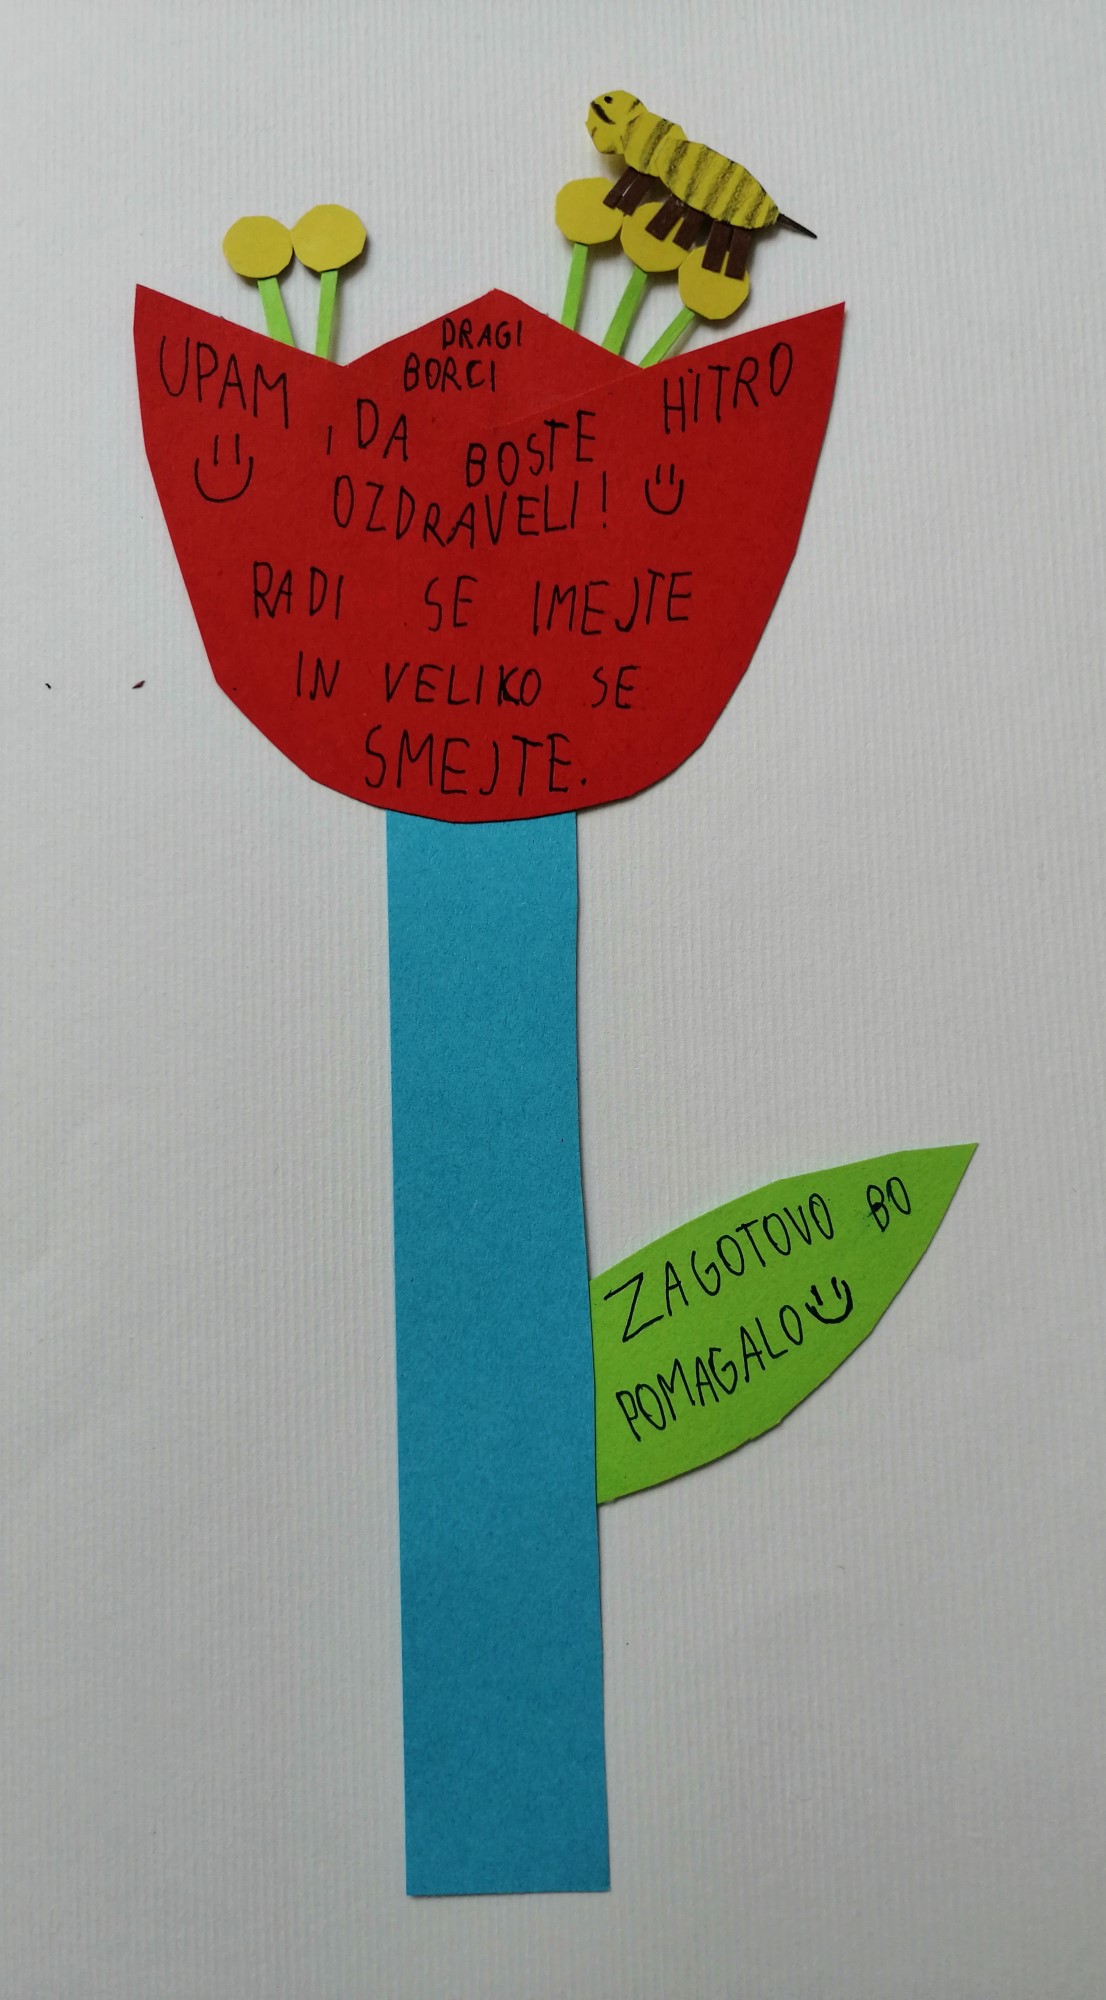 DRAGI
BORCI
UPAM , DA BOSTE HITRO
OZDRAVELI!
RADI SE IMEJTE
IN VELIKO SE
SMEJTE.
ZAGOTOVO BO
POMAGALO